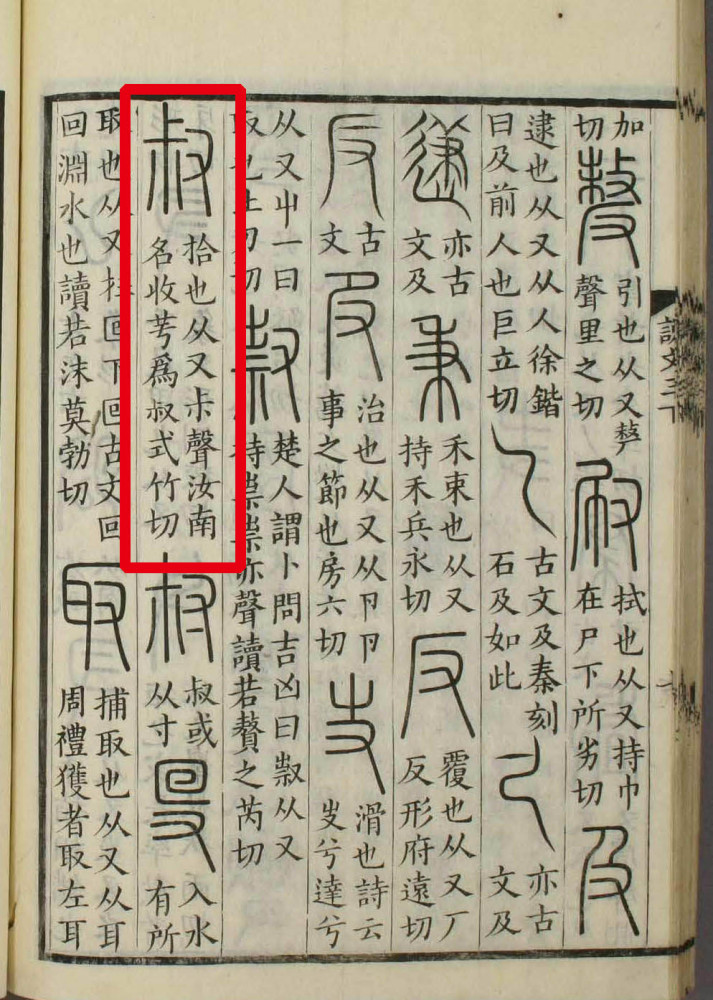 加
切
𠭰
引也从又𠩺
聲里之切
㕞
拭也从又持巾
在尸下所劣切
及
逮也从又从人徐鍇
曰及前人也巨立切
乁
古文及秦刻
石及如此
亦古
文及
亦古
文及
秉
禾束也从又
持禾兵永切
反
覆也从又厂
反形府遠切
古
文
𠬝
治也从又从卪卪
事之節也房六切
𠬢
滑也詩云
𠬢兮達兮
从又屮一曰
取也土刀切
𠭥
楚人謂卜問吉凶曰𠭥从又
持祟祟亦聲讀若贅之芮切
叔
拾也从又尗聲汝南
名收芌爲叔式竹切
𡬧
叔或
从寸
𠬸
入水
有所
取也从又在囘下囘古文回
回淵水也讀若沫莫勃切
取
捕取也从又从耳
周禮獲者取左耳
說文三下